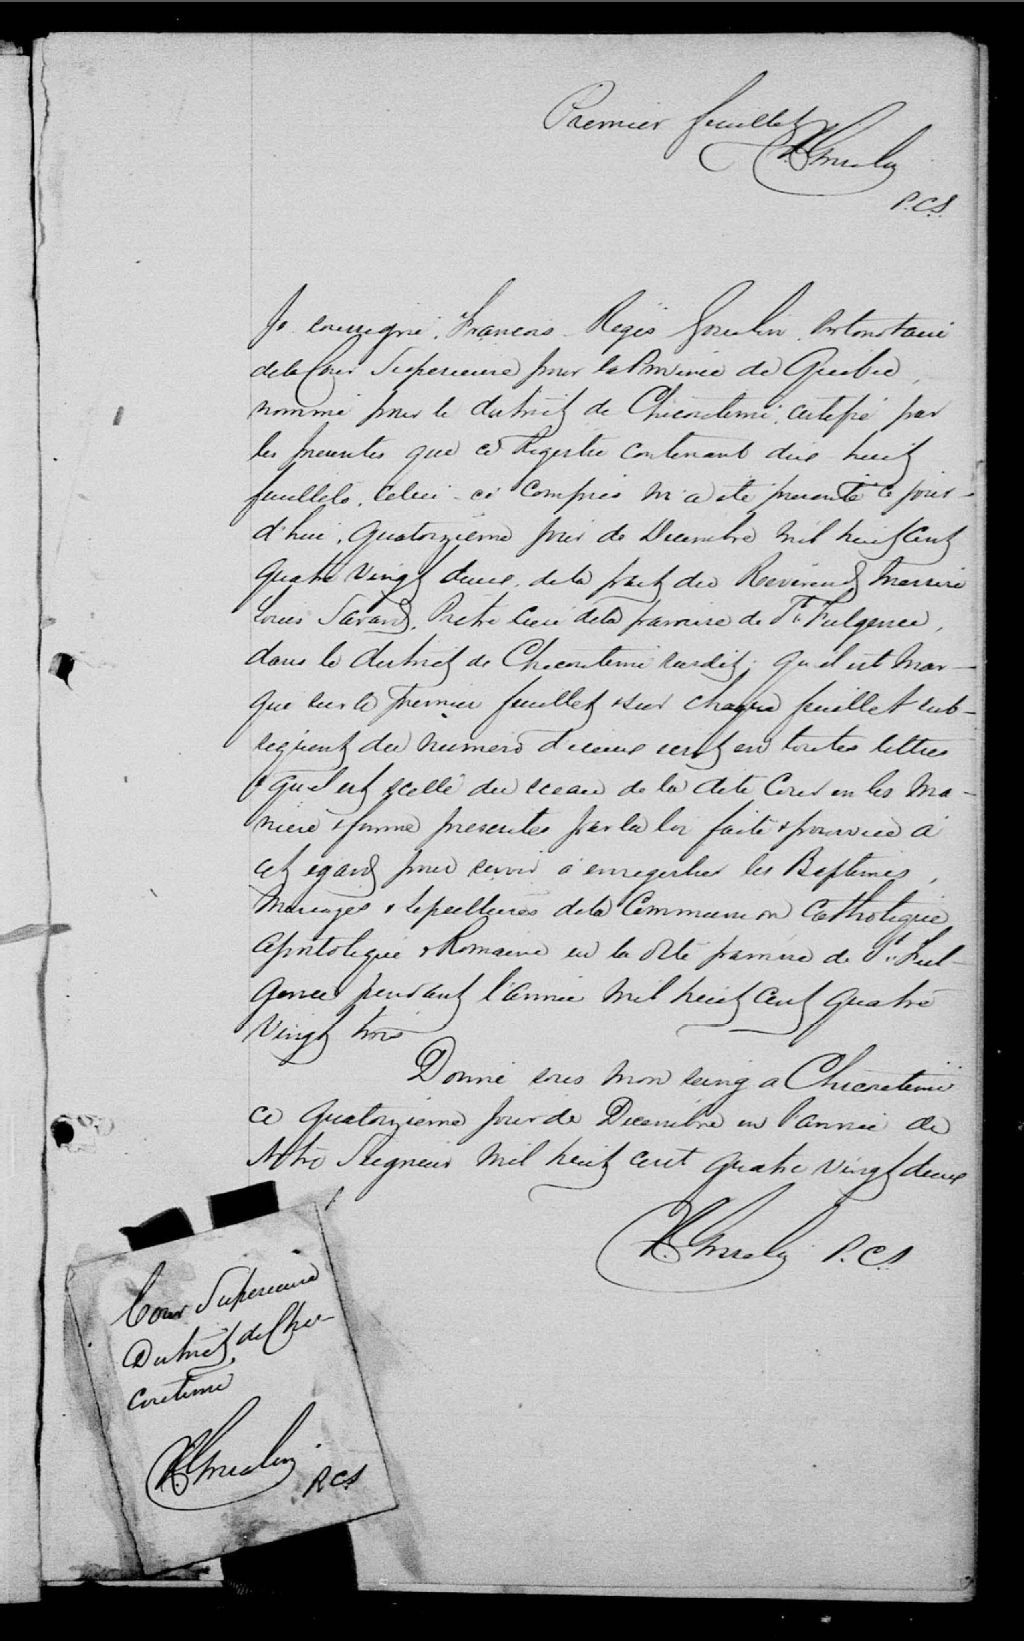 Premier feuillet
FR Gosselin
P.C.S.
Je soussigné, François Régis Gosselin, Protonotaire
de la Cour Superieure pour la Province de Quebec,
nommé pour le district de Chicoutimi, certifie par
les presentes que ce Registre contenant dix-huit
feuillets, celui-ci compris m'a été presenté ce jour-
d'hui, quatorzieme jour de Decembre mil huit cent
quatre vingt deux, de la part du Reverend Messire
Louis Savard, Pretre Curé de la paroisse de St. Fulgence,
dans le district de Chicoutimi susdit; qu'il est mar-
qué sur le premier feuillet & sur chaque feuillet sub-
sequent du numero d'icelui ecrit en toutes lettres
& qu'il est scellé du sceau de la dite Cour en les ma-
niere & forme prescrites par la loi faite & pourvue à
cet egard pour servir à enregistrer les Baptemes,
Mariages & Sepultures de la Communion Catholique
Apostolique & Romaine en la dite paroisse de St. Ful-
gence pendant l'année mil huit cent quatre
vingt trois
Donné sous mon seing a Chicoutimi
ce quatorzieme jour de Decembre en l'année de
Notre Seigneur mil huit cent quatre vingt deux
FR Gosselin P.C.S
Cour Superieure
District de Chi-
coutimi
FR Gosselin
P.C.S